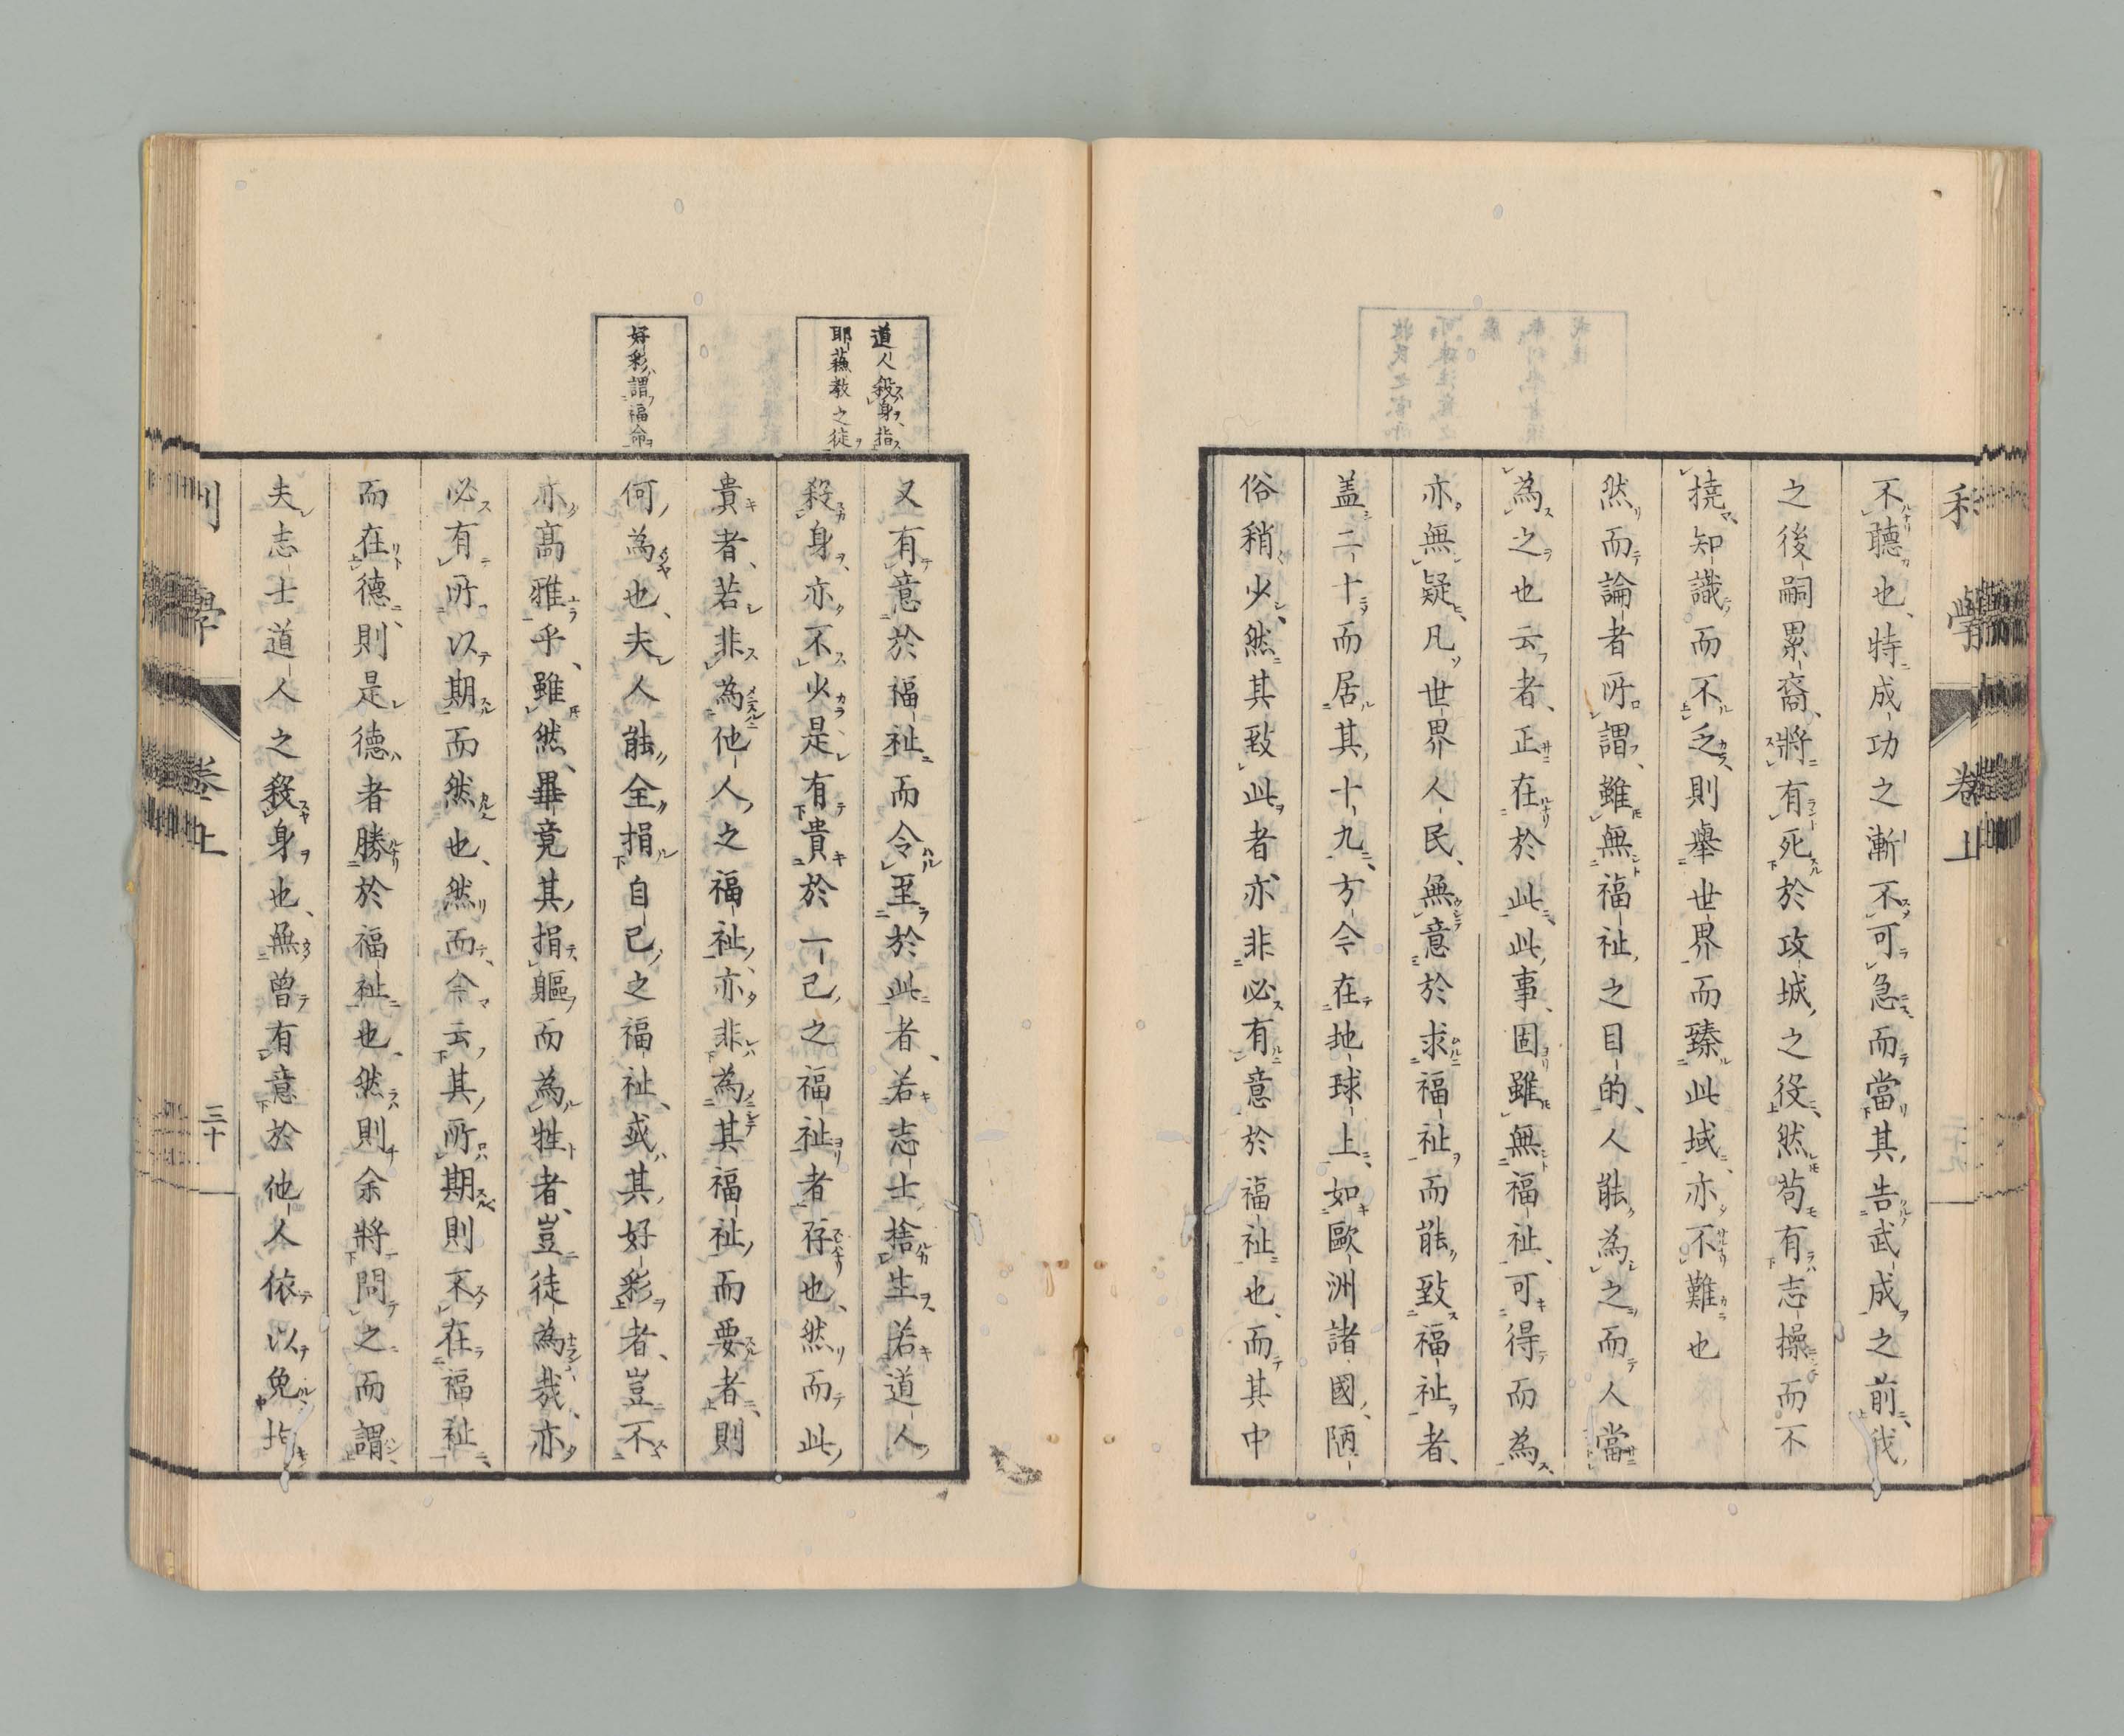 利學 卷上
不聽也、特成功之漸不可急而當其告武成之前、伐
之後嗣累裔、將有死於攻城之役、然苟有志操而不
撓知識而不乏則舉世界而臻此域、亦不難也
然而論者所謂、雖無福祉之目的、人能為之而人當
為之也云者、正在於此、此事、固雖無福祉、可得而為、
亦無疑、凡世界人民、無意於求福祉而能致福祉者、
蓋二十而居其十九、方今在地球上、如歐洲諸國、陋
俗稍少、然其致此者亦非必有意於福祉也、而其中
道人殺身、指
耶蘇教之徒
好彩謂福命
又有意於福祉而令至於此者、若志士捨生、若道人
殺身、亦不少是有貴於一己之福祉者存也、然而此
貴者、若非為他人之福祉、亦非為其福祉而要者、則
何為也、夫人能全捐自己之福祉、或其好彩者、豈不
亦高雅乎、雖然、畢竟其捐軀而為牲者、豈徒為哉、亦
必有所以期而然也、然而今云其所期則不在福祉、
而在德、則是德者勝於福祉也、然則余將問之而謂、
夫志士道人之殺身也、無曾有意於他人依以免此
利學 卷上 三十